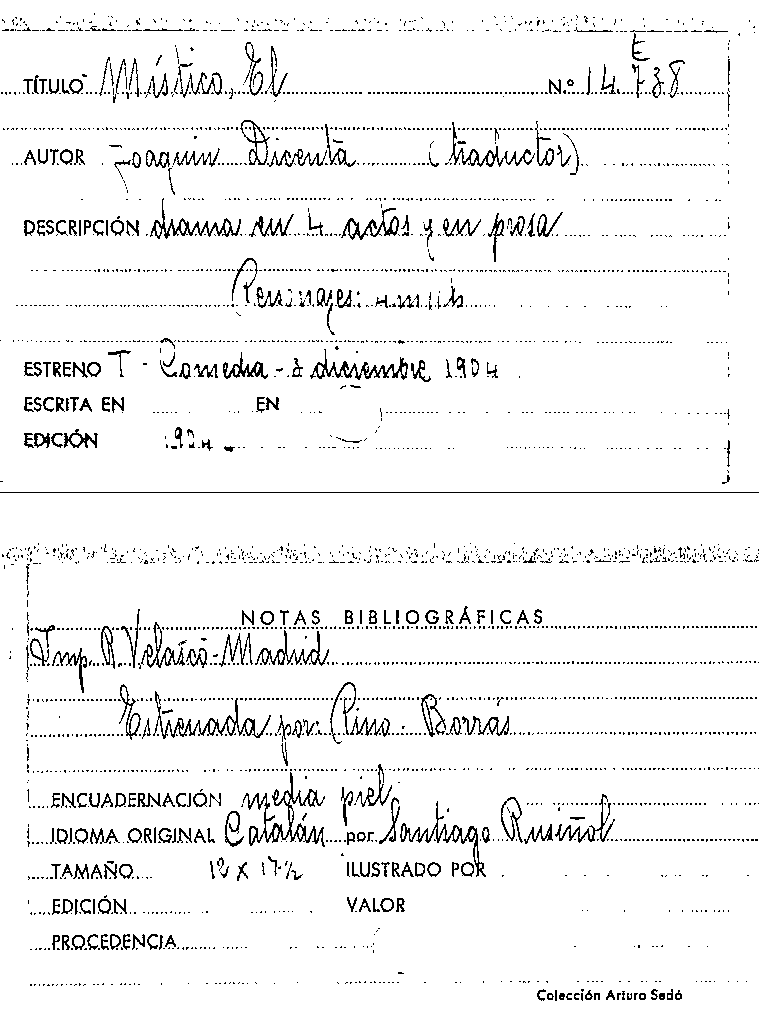 TÍTULO Místico, El N.º 14.738
E
AUTOR Joaquin Dicenta (traductor)
DESCRIPCIÓN drama en 4 actos y en prosa
Personajes:
ESTRENO T - Comedia - diciembre 1904
ESCRITA EN EN
EDICIÓN 1904
NOTAS BIBLIOGRÁFICAS
Imp. R. Velasco - Madrid
Estrenada por: Pino - Borrás
ENCUADERNACIÓN media piel
IDIOMA ORIGINAL Catalán por Santiago Rusiñol
TAMAÑO 12 x 17½ ILUSTRADO POR
EDICIÓN VALOR
PROCEDENCIA
Colección Arturo Sedó